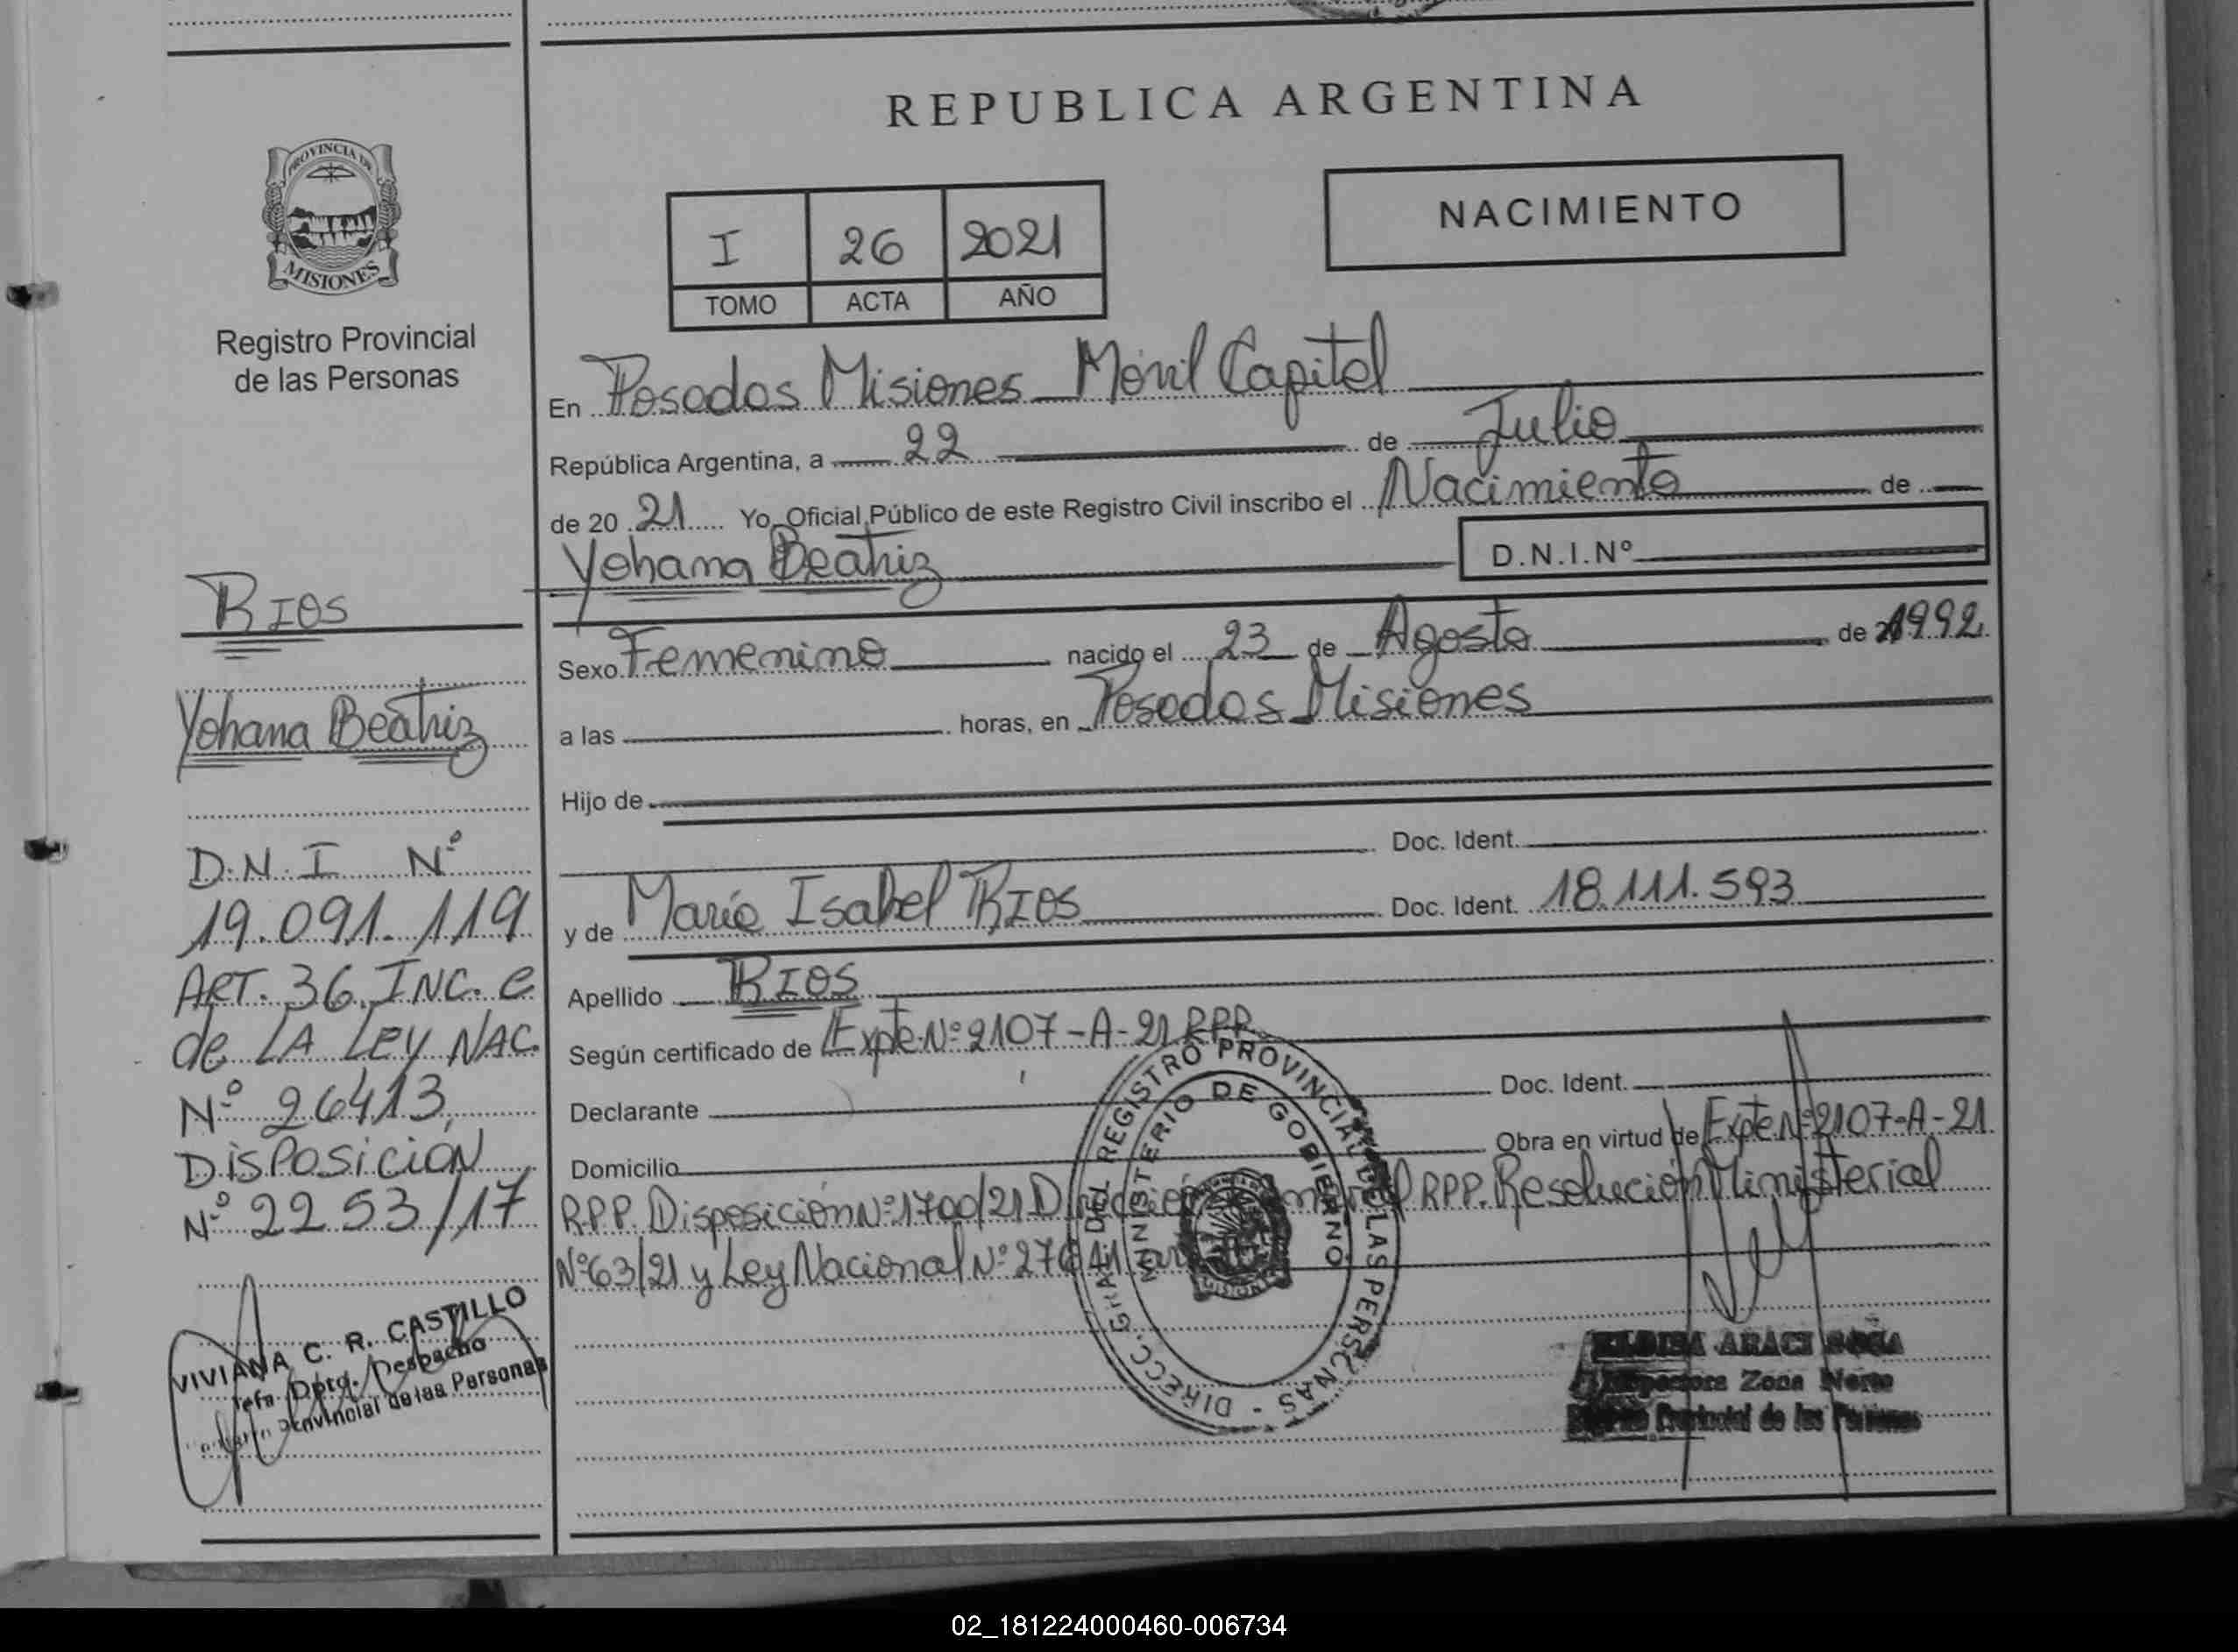 REPUBLICA ARGENTINA
PROVINCIA DE
MISIONES
Registro Provincial
de las Personas
NACIMIENTO
I 26 2021
TOMO ACTA AÑO
En Posadas Misiones Móvil Capital
República Argentina, a 22 de Julio
de 20 21 Yo, Oficial Público de este Registro Civil inscribo el Nacimiento de
Yohana Beatriz D.N.I.Nº
Sexo Femenino nacido el 23 de Agosto de 1992
a las horas, en Posadas Misiones
Hijo de
Doc. Ident.
y de María Isabel RIOS Doc. Ident. 18.111.593
Apellido RIOS
Según certificado de Expte Nº 2107-A-21 RPP.
Declarante Doc. Ident.
Domicilio Obra en virtud de Expte Nº 2107-A-21
R.P.P. Disposición Nº 1700/21 RPP. Resolución Ministerial
Nº 63/21 y Ley Nacional Nº
RIOS
Yohana Beatriz
D.N.I Nº
19.091.119
ART. 36 INC. c
de LA Ley NAC.
Nº 26413,
DISPOSICION
Nº 2253/17
VIVIANA C. R. CASTILLO
Jefa Dpto. Despacho
Provincial de las Personas
DIRECC. GRAL. DEL REGISTRO PROVINCIAL DE LAS PERSONAS
MINISTERIO DE GOBIERNO
MISIONES
ARACI
Zona Norte
Provincial de las Personas
02_181224000460-006734